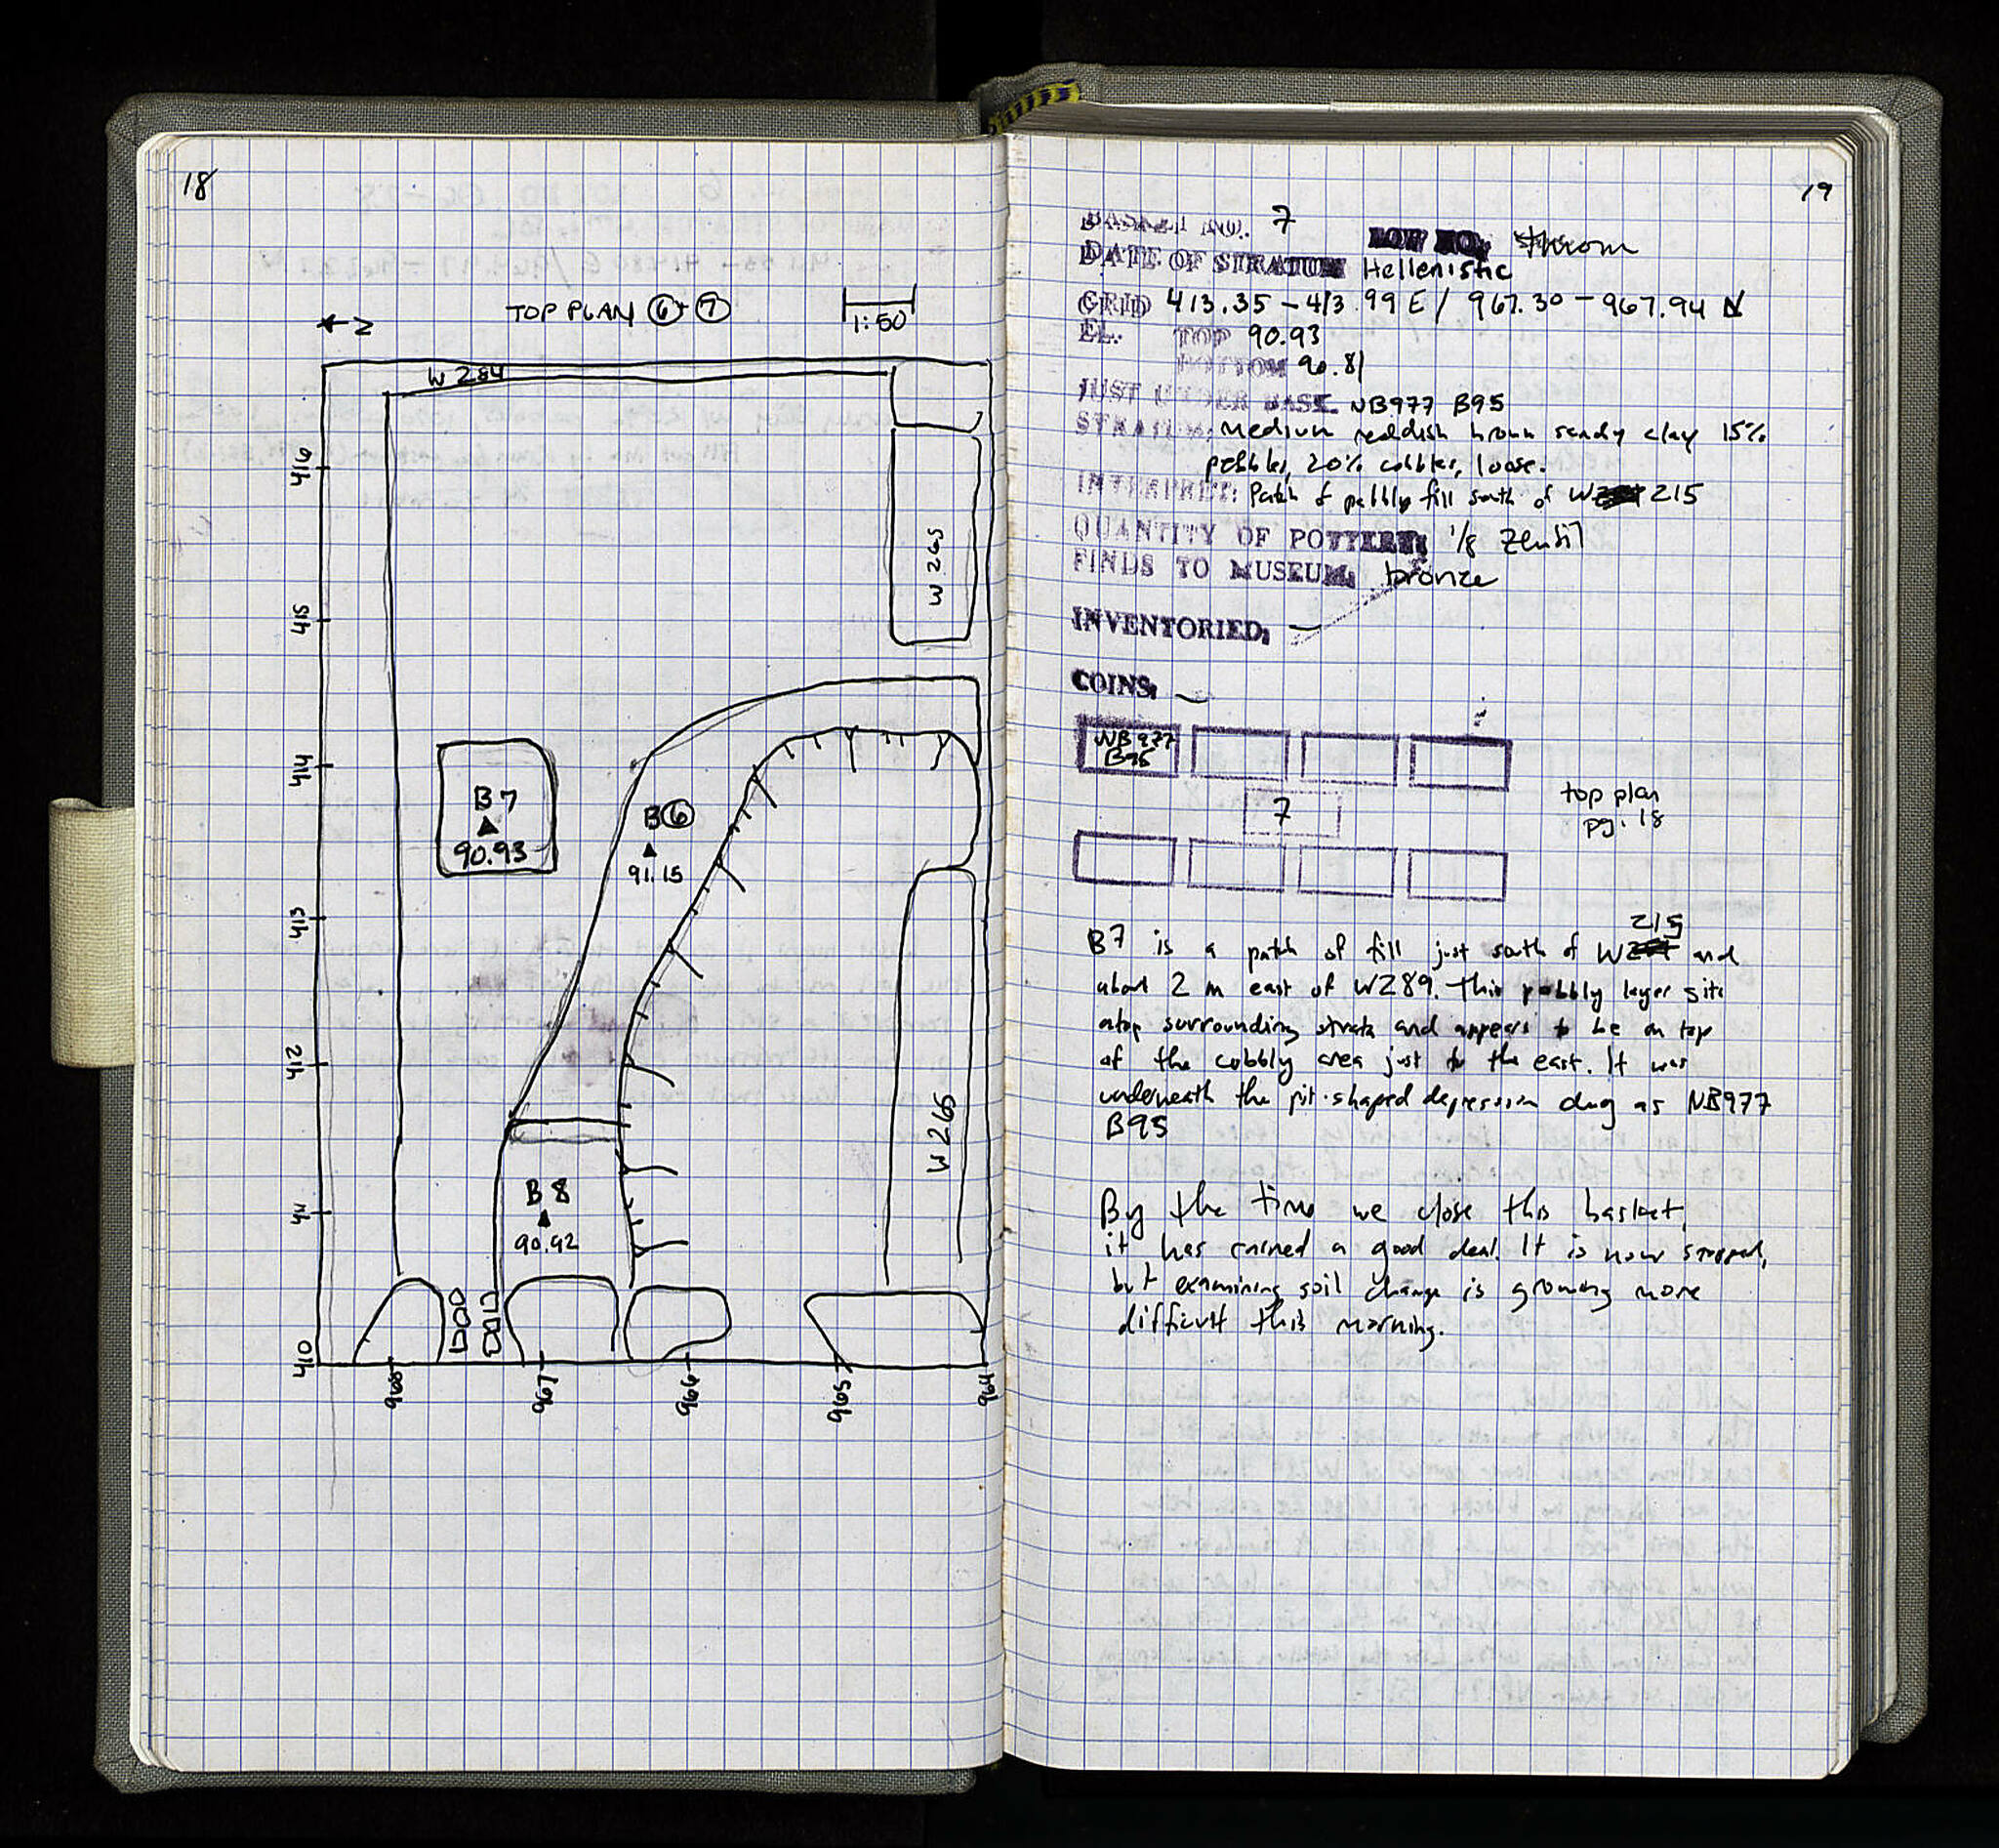 18
TOP PLAN 6+7
1:50
N
W 284
416
W 265
415
414
B7
90.93
B6
91.15
413
412
W 265
B8
90.92
411
410
968
967
966
965
964
19
BASKET NO. 7
DATE OF STRATUM Hellenistic
GRID 413.35 - 413.99 E / 967.30 - 967.94 N
EL. TOP 90.93
BOTTOM 90.81
JUST UNDER BASK. NB977 B95
STRATUM: Medium reddish brown sandy clay 15%
pebbles, 20% cobbles, loose.
INTERPRET: Patch of pebbly fill south of W 215
QUANTITY OF POTTERY: 1/8 Zembil
FINDS TO MUSEUM: bronze
INVENTORIED: —
COINS: —
NB977
B95
7
top plan
pg. 18
215
B7 is a patch of fill just south of W and
about 2 m east of W289. This pebbly layer sits
atop surrounding strata and appears to be on top
of the cobbly area just to the east. It was
underneath the pit-shaped depression dug as NB977
B95
By the time we close this basket,
it has rained a good deal. It is now stopped,
but examining soil change is growing more
difficult this morning.